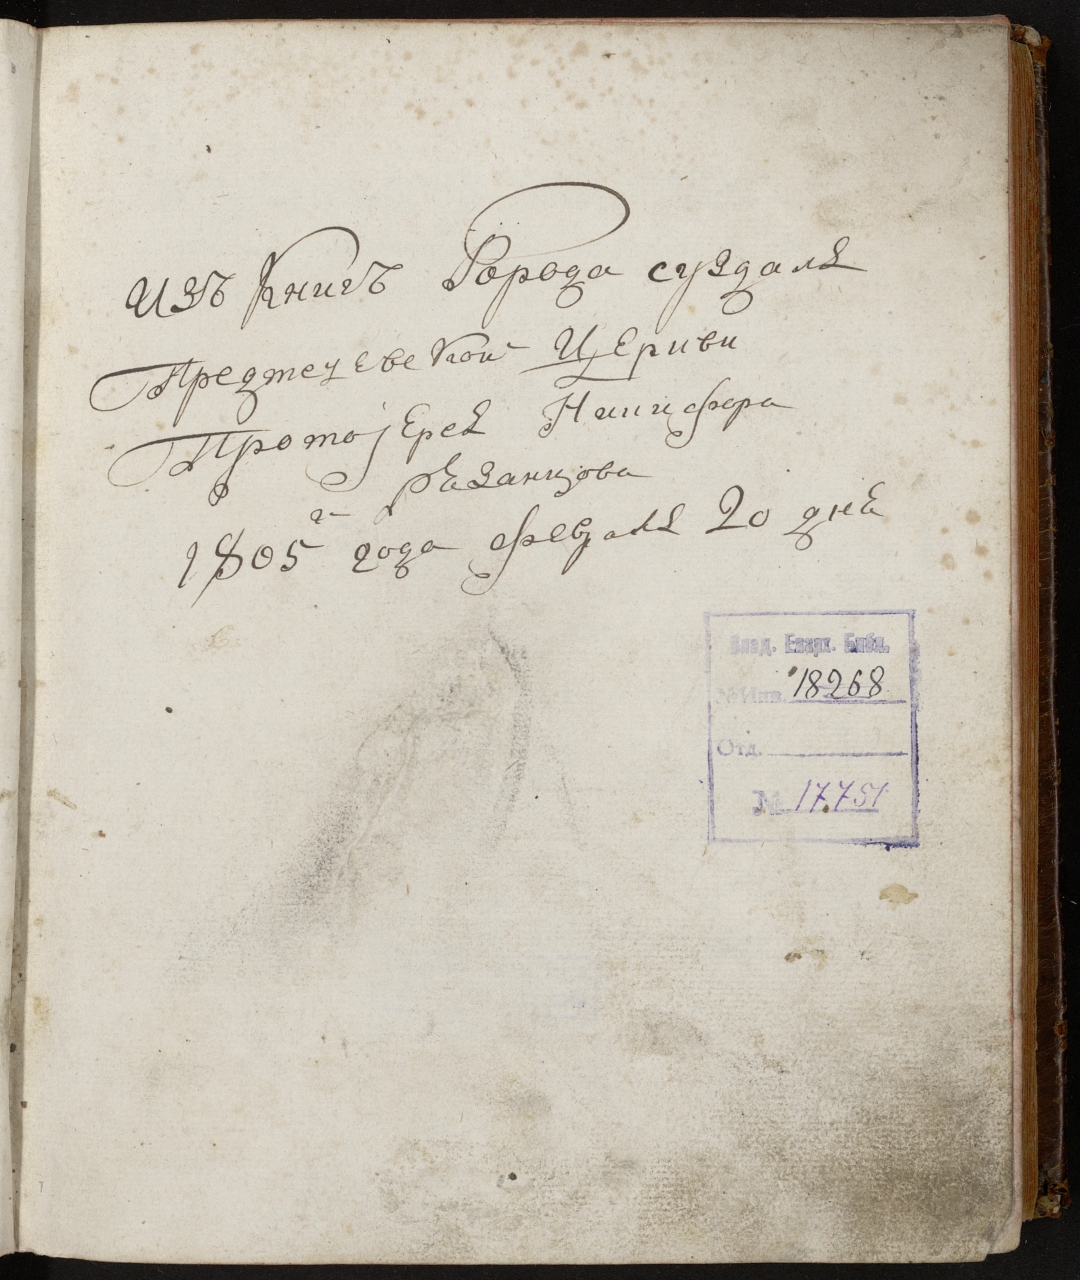 изъ Книгъ Города суздаля
Предтечевской Церкви
Протоіерея Никифора
Резанцова
1805 го года февраля 20 дня
Влад. Епарх. Библ.
№ Инв. 18268
Отд.
№ 17.751